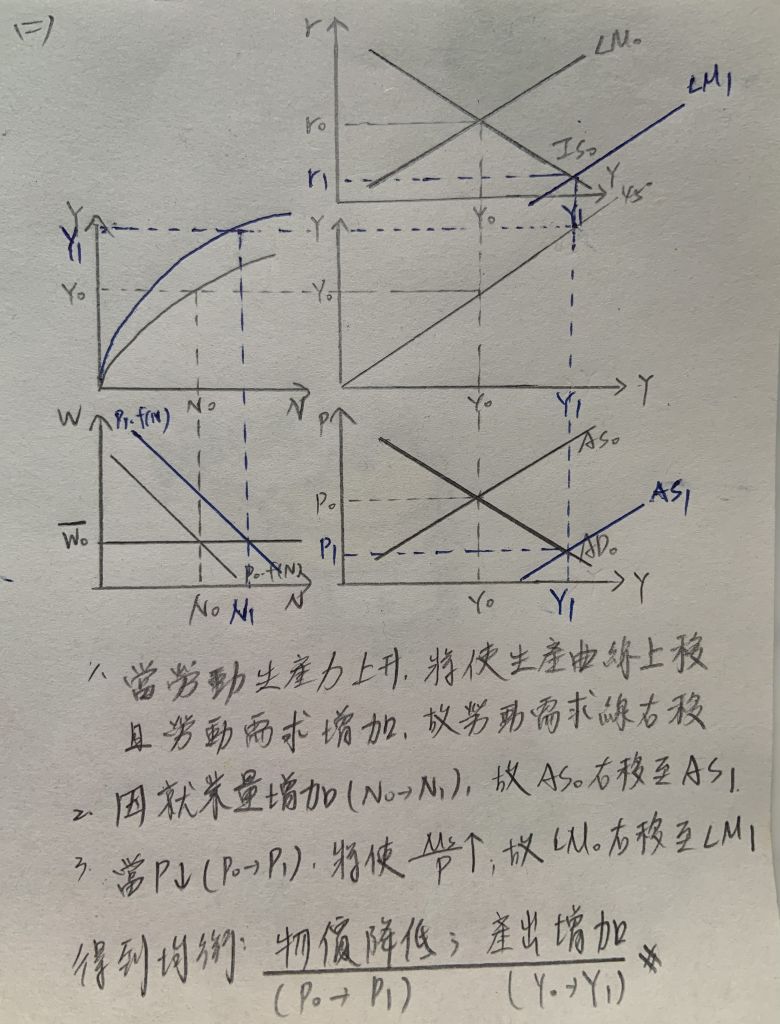 (二)
r
LM₀
LM₁
r₀
IS₀
r₁
Y
Y₀
Y₁
45°
Y
Y
Y₁
Y₀
Y₀
N₀
N
Y₀
Y₁
Y
W
P₁·f(N)
P
AS₀
P₀
AS₁
W̅₀
P₁
AD₀
P₀·f(N)
N₀
N₁
N
Y₀
Y₁
Y
1. 當勞動生產力上升,將使生產曲線上移
且勞動需求增加,故勞動需求線右移
2. 因就業量增加(N₀→N₁),故AS₀右移至AS₁
3. 當P↓(P₀→P₁),將使 Ms/P ↑,故LM₀右移至LM₁
得到均衡:物價降低;產出增加
(P₀→P₁) (Y₀→Y₁)